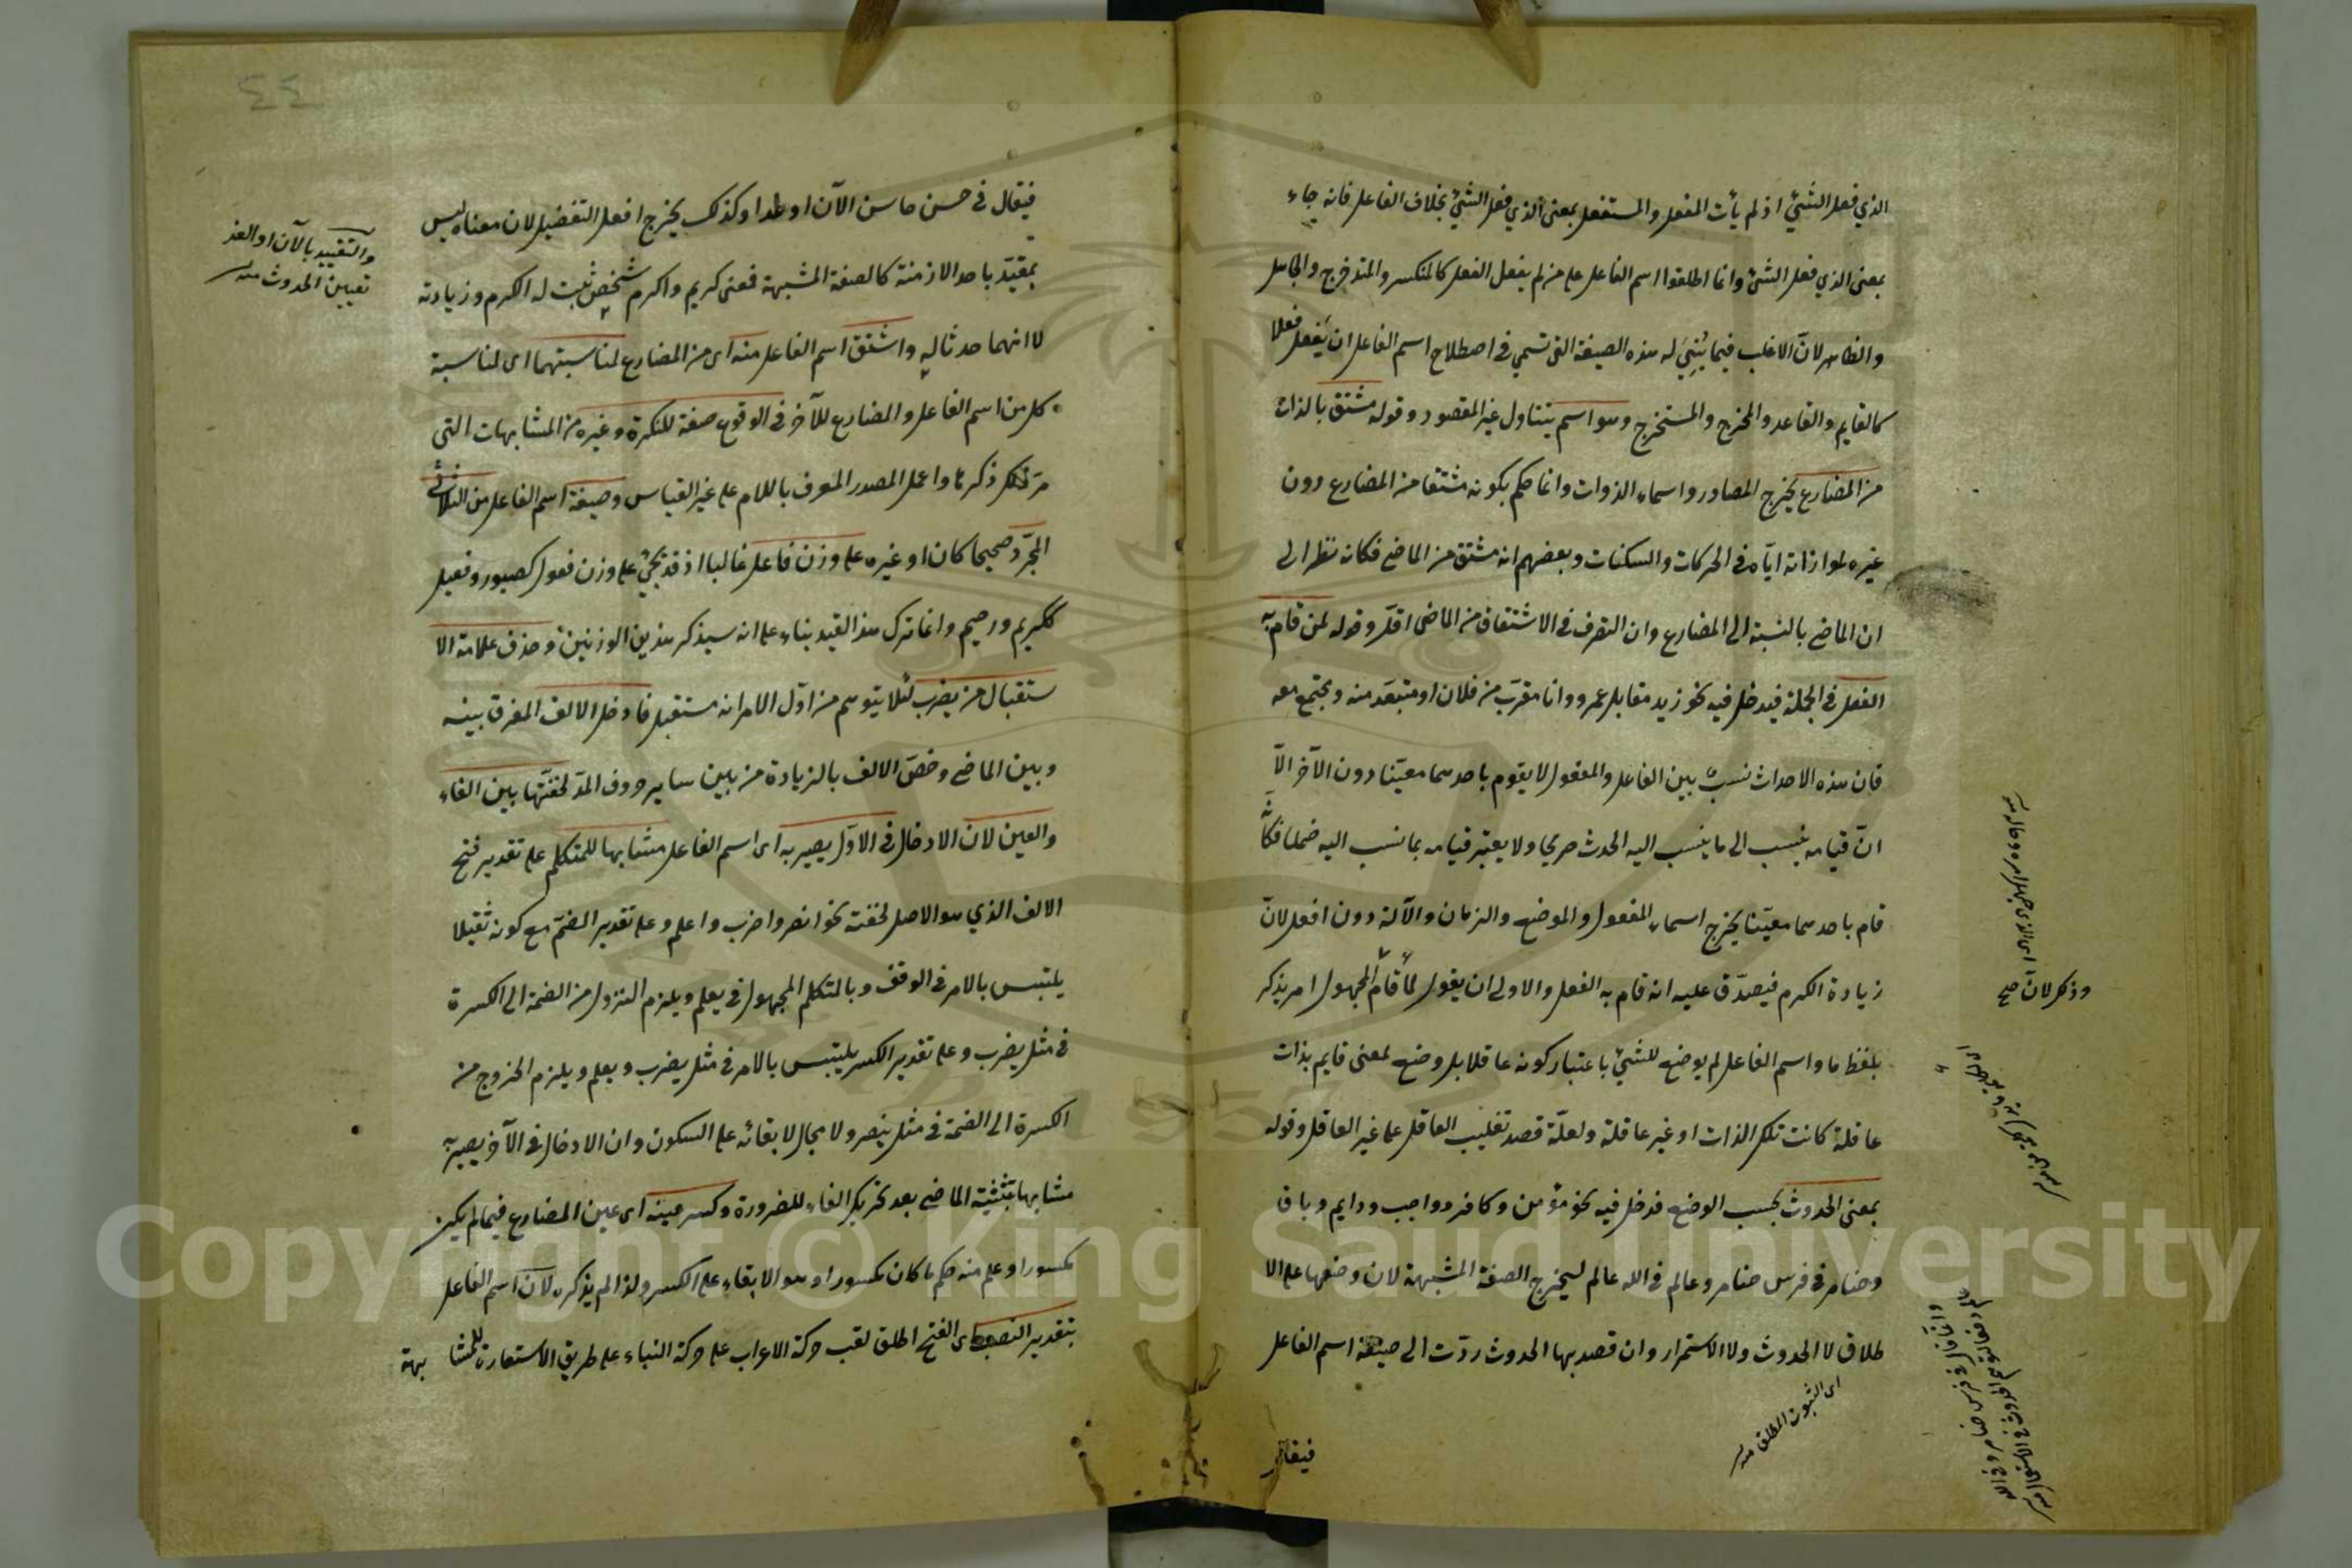 الذي فعل الشئ اذ لم يأت المفعل والمستفعل بمعنى الذي فعل الشئ بخلاف الفاعل فانه جاء
بمعنى الذي فعل الشئ وانما اطلقوا اسم الفاعل على من لم يفعل الفعل كالمنكسر والمتدحرج والجاهل
والظاهر لان الاغلب فيما بُنِيَ له هذه الصيغة التى تسمى في اصطلاح اسم الفاعل ان يفعل فعلا
كالقايم والقاعد والمخرج والمستخرج وهو اسم يتناول غير المقصود وقوله مشتق بالذات
من المضارع يخرج المصادر واسماء الذوات وانما حكم بكونه مشتقا من المضارع دون
غيره لموازنته اياه في الحركات والسكنات وبعضهم انه مشتق من الماضي فكانه نظر الى
ان الماضي بالنسبة الى المضارع وان التصرف في الاشتقاق من الماضى اقل وقوله لمن قام به
الفعل في الجملة فيدخل فيه نحو زيد مقابل عمرو وانا مقرب من فلان او متبعد منه ومجتمع معه
فان هذه الاحداث نسب بين الفاعل والمفعول لا يقوم باحدهما معينا دون الآخر الا
ان قيامه ينسب الى ما ينسب اليه الحدث صريحا ولا يعتبر قيامه بما نسب اليه ضمنا فكأنه
قام باحدهما معينا يخرج اسماء المفعول والموضع والزمان والآلة دون افعل لان
زيادة الكرم فيصدق عليه انه قام به الفعل والاولى ان يقول لما قام المجهول امر يذكر
بلفظ ما واسم الفاعل لم يوضع للشئ باعتبار كونه عاقلا بل وضع لمعنى قايم بذات
عاقلة كانت تلك الذات او غير عاقلة ولعله قصد تغليب العاقل على غير العاقل وقوله
بمعنى الحدوث بحسب الوضع فدخل فيه نحو مؤمن وكافر وواجب ودايم وباق
وضامر في فرس ضامر وعالم في الله عالم ليخرج الصفة المشبهة لان وضعها على الا
طلاق لا الحدوث ولا الاستمرار وان قصد بها الحدوث ردت الى صيغة اسم الفاعل
اى الثبوت المطلق منه
فيقال
وذكر لان صح
٤٤
فيقال في حسن حاسن الآن او غدا وكذلك يخرج افعل التفضيل لان معناه ليس
بمقيد باحد الازمنة كالصفة المشبهة فمعنى كريم واكرم شخص ثبت له الكرم وزيادته
لا انهما حدثا له واشتق اسم الفاعل منه اى من المضارع لمناسبتهما اى لمناسبة
كل من اسم الفاعل والمضارع للآخر في الوقوع صفة للنكرة وغيره من المشابهات التى
مر ذكرها واعمل المصدر المعرف باللام على غير القياس وصيغة اسم الفاعل من الثلاثى
المجرد صحيحا كان او غيره على وزن فاعل غالبا اذ قد يجئ على وزن فعول كصبور وفعيل
ككريم ورحيم وانما ترك هذا القيد بناء على انه سيذكر هذين الوزنين وحذف علامة الا
ستقبال من يضرب لئلا يتوهم من اول الامر انه مستقبل فادخل الالف المفرق بينه
وبين الماضي وخص الالف بالزيادة من بين ساير حروف المد لخفتها بين الفاء
والعين لان الادخال في الاول يصير به اى اسم الفاعل مشابها للمتكلم على تقدير فتح
الالف الذي هو الاصل لخفته نحو انصر واضرب واعلم وعلى تقدير الضم مع كونه ثقيلا
يلتبس بالامر في الوقف وبالمتكلم المجهول في يعلم ويلزم النزول من الضمة الى الكسرة
في مثل يضرب وعلى تقدير الكسر يلتبس بالامر في مثل يضرب ويعلم ويلزم الخروج من
الكسرة الى الضمة في مثل ينصر ولا مجال لابقائه على السكون وان الادخال في الآخر يصير به
مشابها بتثنية الماضي بعد تحريك الفاء للضرورة وكسر عينه اى عين المضارع فيما لم يكن
مكسورا وعلم منه حكم ما كان مكسورا وهو الابقاء على الكسر ولذا لم يذكره لان اسم الفاعل
بتقدير النصب اى الفتح اطلق لقب حركة الاعراب على حركة البناء على طريق الاستعارة للمشا بهة
والتقييد بالآن او الغد
تعيين الحدوث منه
Copyright © King Saud University
1957